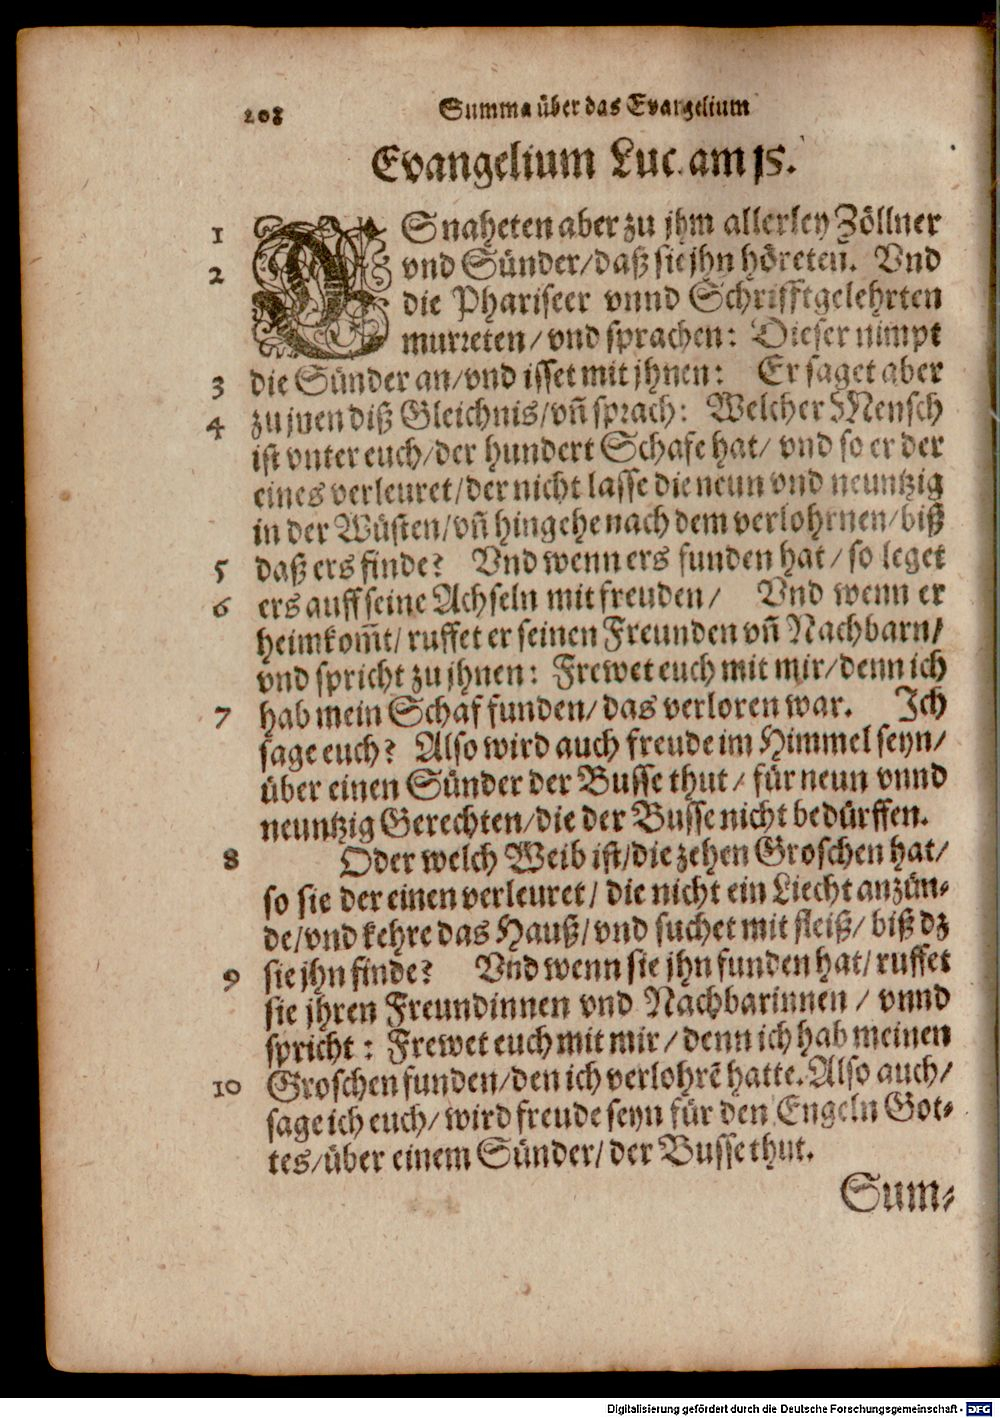 208 Summa über das Evangelium
Evangelium Luc. am 15.
1 ES naheten aber zu jhm allerley Zöllner
2 vnd Sünder/daß sie jhn höreten. Vnd
die Phariseer vnnd Schrifftgelehrten
murreten/vnd sprachen: Dieser nimpt
3 die Sünder an/vnd isset mit jhnen: Er saget aber
4 zu jnen diß Gleichnis/vñ sprach: Welcher Mensch
ist vnter euch/der hundert Schafe hat/ vnd so er der
eines verleuret/der nicht lasse die neun vnd neuntzig
in der Wüsten/vñ hingehe nach dem verlohrnen/biß
5 daß ers finde? Vnd wenn ers funden hat/ so leget
6 ers auff seine Achseln mit freuden/ Vnd wenn er
heimkom̃t/ ruffet er seinen Freunden vñ Nachbarn/
vnd spricht zu jhnen: Frewet euch mit mir/denn ich
7 hab mein Schaf funden/das verloren war. Ich
sage euch? Also wird auch freude im Himmel seyn/
über einen Sünder der Busse thut/ für neun vnnd
neuntzig Gerechten/die der Busse nicht bedürffen.
8 Oder welch Weib ist/die zehen Groschen hat/
so sie der einen verleuret/ die nicht ein Liecht anzün-
de/vnd kehre das Hauß/vnd suchet mit fleiß/ biß dz
9 sie jhn finde? Vnd wenn sie jhn funden hat/ ruffet
sie jhren Freundinnen vnd Nachbarinnen / vnnd
spricht: Frewet euch mit mir/ denn ich hab meinen
10 Groschen funden/den ich verlohrē hatte. Also auch/
sage ich euch/ wird freude seyn für den Engeln Got-
tes/über einem Sünder/ der Busse thut.
Sum-
Digitalisierung gefördert durch die Deutsche Forschungsgemeinschaft - DFG